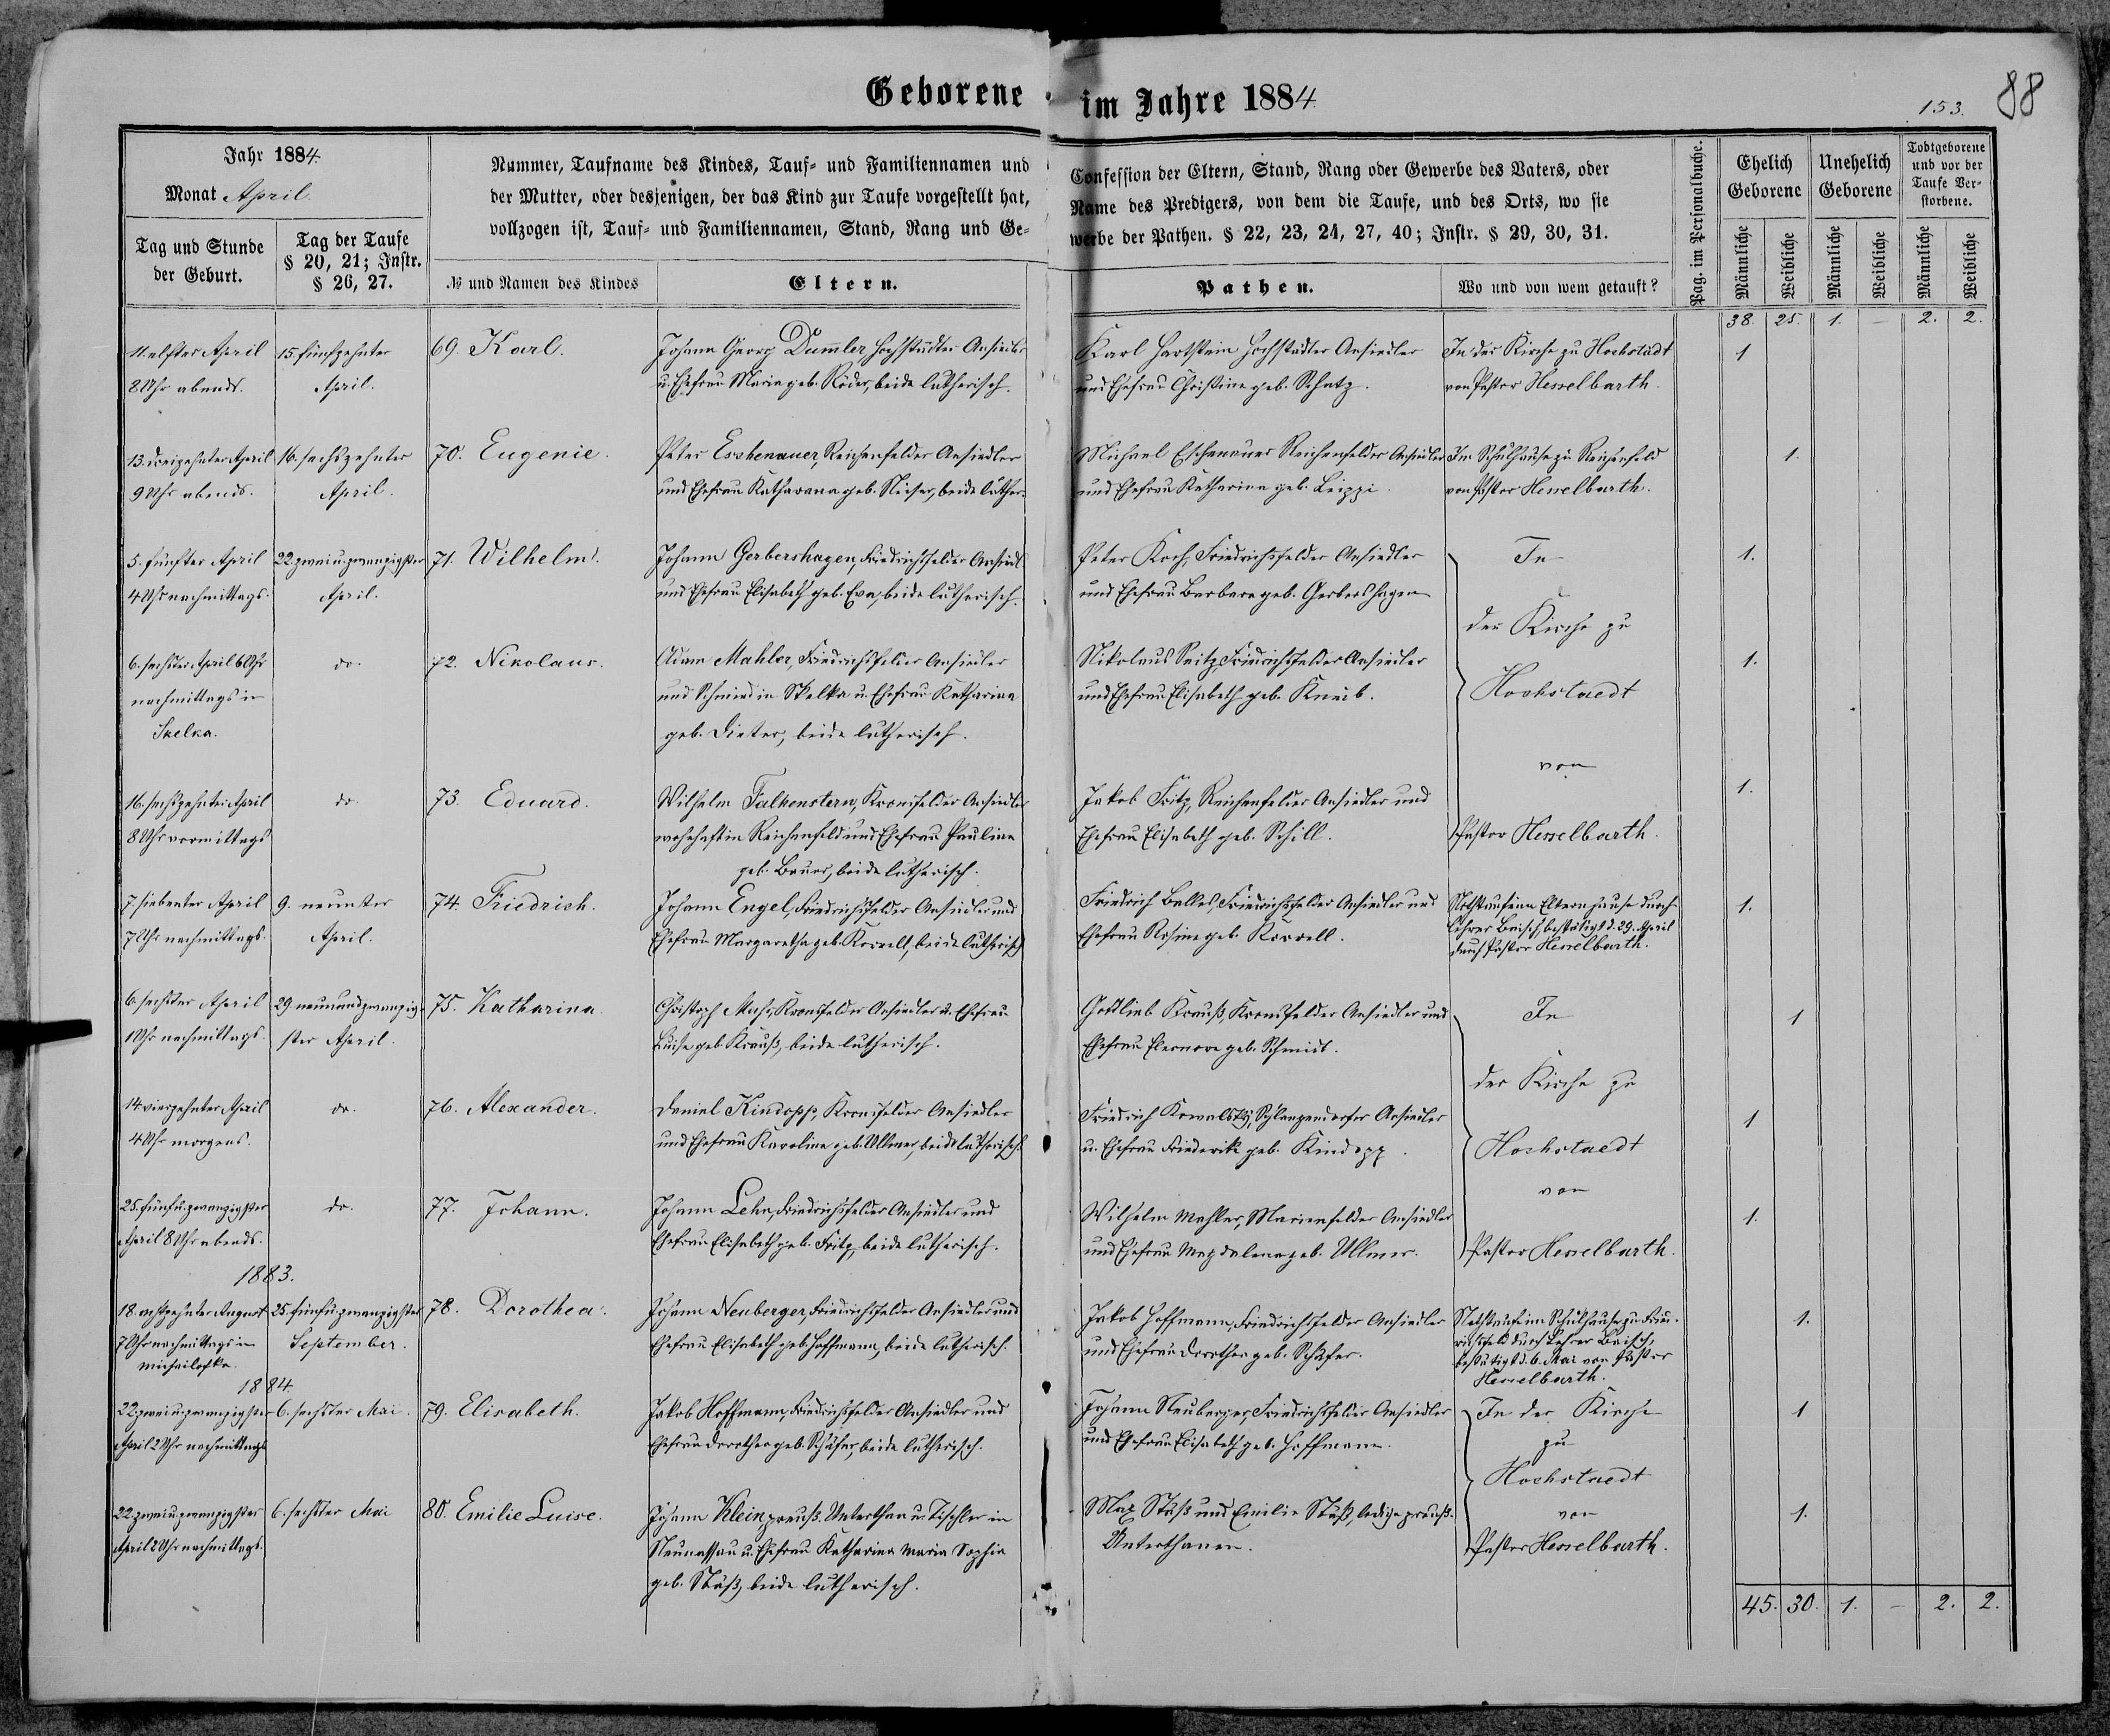 Geborene im Jahre 1884.
153.
88
Jahr 1884.
Monat April.
Tag und Stunde der Geburt.
Tag der Taufe § 20, 21; Instr. § 26, 27.
Nummer, Taufname des Kindes, Tauf- und Familiennamen und
der Mutter, oder desjenigen, der das Kind zur Taufe vorgestellt hat,
vollzogen ist, Tauf- und Familiennamen, Stand, Rang und Ge-
№ und Namen des Kindes
Eltern.
Confession der Eltern, Stand, Rang oder Gewerbe des Vaters, oder
Name des Predigers, von dem die Taufe, und des Orts, wo sie
werbe der Pathen. § 22, 23, 24, 27, 40; Instr. § 29, 30, 31.
Pathen.
Wo und von wem getauft?
Pag. im Personalbuche.
Ehelich Geborene
Unehelich Geborene
Todtgeborene und vor der Taufe Verstorbene.
Männliche Weibliche Männliche Weibliche Männliche Weibliche
38. 25. 1. – 2. 2.
11. elfter April 15. fünfzehnter 69. Karl. Johann Georg Dumler Hochstädter Ansiedler Karl Hartstein Hochstädter Ansiedler In der Kirche zu Hochstädt 1
8 Uhr abends. April. u. Ehefrau Maria geb. Röder, beide lutherisch. und Ehefrau Christine geb. Schatz. von Pastor Hesselbarth.
13. dreizehnter April 16. sechszehnter 70. Eugenie. Peter Eschenauer, Reichenfelder Ansiedler Michael Eschenauer Reichenfelder Ansiedler Im Schulhause zu Reichenfeld 1.
9 Uhr abends. April. und Ehefrau geb. beide luther. und Ehefrau Katharina geb. Leippi. von Pastor Hesselbarth.
5. fünfter April 22. zwei u. zwanzigster 71. Wilhelm. Johann Gerbershagen, Friedrichsfelder Ansiedl. Peter Koch, Friedrichsfelder Ansiedler In 1.
4 Uhr nachmittags. April. und Ehefrau Elisabeth geb. Eva, beide lutherisch. und Ehefrau Barbara geb. Gerbershagen
der Kirche zu
6. sechster April 6 Uhr do. 72. Nikolaus. Adam Mahler, Friedrichsfelder Ansiedler Nikolaus Seitz, Friedrichsfelder Ansiedler 1.
nachmittags in und Schmied in Skelka u. Ehefrau Katharina und Ehefrau Elisabeth geb. Kneib. Hochstaedt
Skelka. geb. Dieter, beide lutherisch.
von
16. sechszehnter April do. 73. Eduard. Wilhelm Falkenstern, Kronsfelder Ansiedler Jakob Fritz, Reichenfelder Ansiedler und 1.
8 Uhr vormittags wohnhaft in Reichenfeld und Ehefrau Pauline Ehefrau Elisabeth geb. Schill. Pastor Hesselbarth.
geb. Bauer, beide lutherisch.
7. siebenter April 9. neunter 74. Friedrich. Johann Engel, Friedrichsfelder Ansiedler und Friedrich Belles, Friedrichsfelder Ansiedler und Nothtaufe im Elternhause durch 1.
7 Uhr nachmittags. April. Ehefrau Margaretha geb. Korrell, beide lutherisch Ehefrau Rosine geb. Korrell. Lehrer Baisch, bestätigt d. 29. April
durch Pastor Hesselbarth.
6. sechster April 29. neunundzwanzig- 75. Katharina. Christoph Kronsfelder Ansiedler u. Ehefrau Gottlieb Krauß, Kronsfelder Ansiedler und In 1
1 Uhr nachmittags. ster April. Luise geb. Krauß, beide lutherisch. Ehefrau Eleonore geb. Schmidt.
der Kirche zu
14. vierzehnter April do. 76. Alexander. Daniel Kindopp, Kronsfelder Ansiedler Friedrich Kowalsky, Ansiedler 1
4 Uhr morgens. und Ehefrau Karoline geb. Ullmer, beide lutherisch. u. Ehefrau Friederike geb. Kindopp. Hochstaedt
von
25. fünfu. zwanzigster do. 77. Johann. Johann Lehr, Friedrichsfelder Ansiedler und Wilhelm Mahler, Marienfelder Ansiedler 1.
April 8 Uhr abends. Ehefrau Elisabeth geb. Fritz, beide lutherisch. und Ehefrau Magdalena geb. Ullmer. Pastor Hesselbarth.
1883.
18. achtzehnter August 25. fünfu. zwanzigster 78. Dorothea. Johann Neuberger, Friedrichsfelder Ansiedler und Jakob Hoffmann, Friedrichsfelder Ansiedler Nothtaufe im Schulhause zu Fried- 1.
7 Uhr nachmittags in September. Ehefrau Elisabeth geb. Hoffmann, beide lutherisch. und Ehefrau Dorothea geb. Schäfer. richsfeld durch Lehrer Baisch,
Michailofka. bestätigt d. 6. Mai von Pastor
Hesselbarth.
1884.
22. zweiu. zwanzigster 6. sechster Mai. 79. Elisabeth. Jakob Hoffmann, Friedrichsfelder Ansiedler und Johann Neuberger, Friedrichsfelder Ansiedler In der Kirche 1
April 2 Uhr nachmittags Ehefrau Dorothea geb. Schäfer, beide lutherisch. und Ehefrau Elisabeth geb. Hoffmann. zu
Hochstaedt
22. zweiu. zwanzigster 6. sechster Mai 80. Emilie Luise. Johann Klein preuß. Unterthan u. Tischler in Max Stüß und Emilie Stüß, ledige preuß. von 1.
April 2 Uhr nachmittags. Neunassau u. Ehefrau Katharina Maria Sophia Unterthanen. Pastor Hesselbarth.
geb. Stüß, beide lutherisch.
45. 30. 1. – 2. 2.